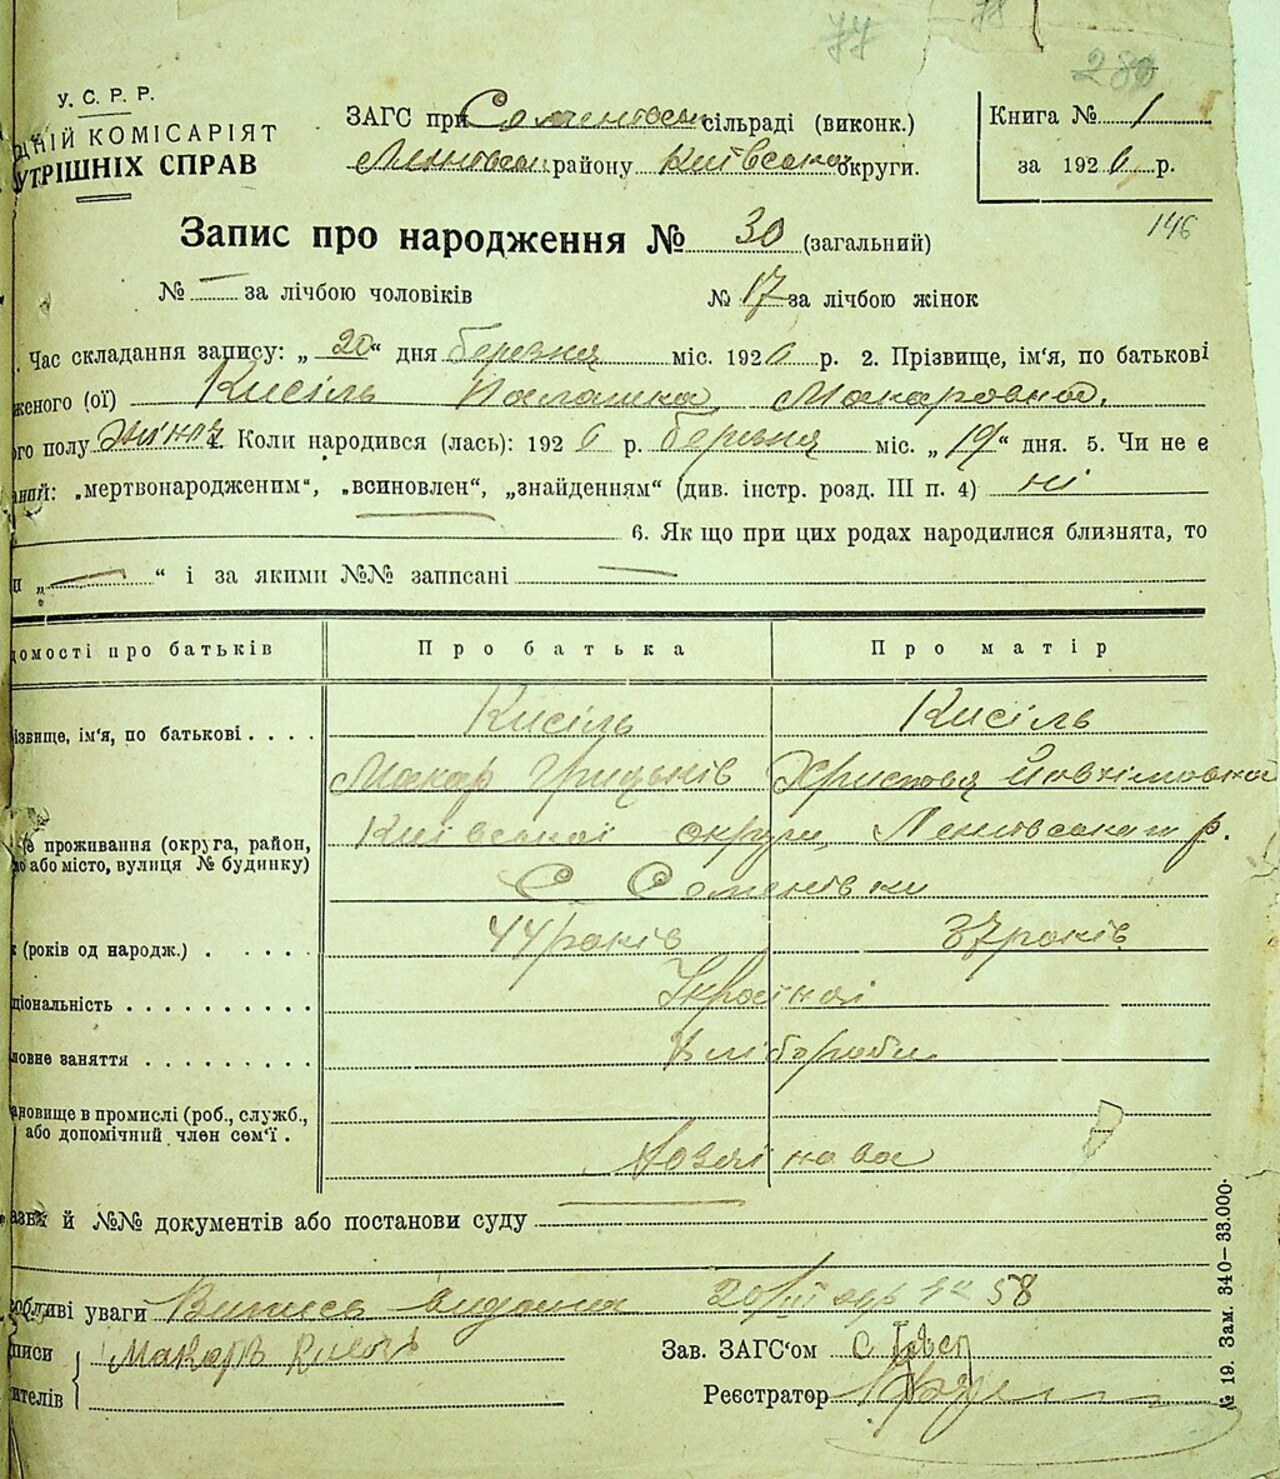 77 78
280
У. С. Р. Р.
ДНІЙ КОМІСАРІЯТ
УТРІШНІХ СПРАВ
ЗАГС при сільраді (виконк.)
району Київської округи.
Книга № 1
за 1926 р.
146
Запис про народження № 30 (загальний)
№ — за лічбою чоловіків № 17 за лічбою жінок
Час складання запису: „ 20 “ дня березня міс. 1926 р. 2. Прізвище, ім'я, по батькові
женого (ої) Кисіль Палашка Макаровна.
го полу жіноч. Коли народився (лась): 1926 р. березня міс. „ 19 “ дня. 5. Чи не є
аний: „мертвонародженим“, „всиновлен“, „знайденням“ (див. інстр. розд. III п. 4) ні
6. Як що при цих родах народилися близнята, то
и „ — “ і за якими №№ записані —
домості про батьків Про батька Про матір
ізвище, ім'я, по батькові . . . . Кисіль Кисіль
Макар Грицьків Христя Йовхимовна
е проживання (округа, район, Київської округи, р.
або місто, вулиця № будинку)
С Семенівки
(років од народж.) . . . . . 44 років 37 років
ціональність . . . . . . . . . . Українці
ловне заняття . . . . . . . . . Хлібороби
ановище в промислі (роб., служб.,
або допомічний член сем'ї .
Хозяїнова
азва й №№ документів або постанови суду
обливі уваги Випись видана 20/III 58
писи Макаръ Кисѣль Зав. ЗАГС'ом
ителів Реєстратор
№ 19. Зам. 340—33.000.